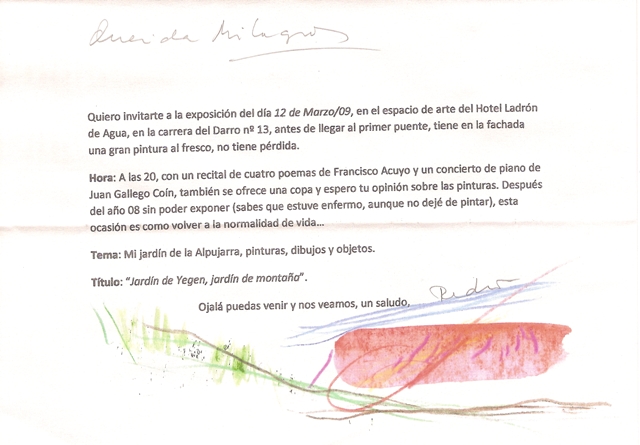 Querida Milagros
Quiero invitarte a la exposición del día 12 de Marzo/09, en el espacio de arte del Hotel Ladrón
de Agua, en la carrera del Darro nº 13, antes de llegar al primer puente, tiene en la fachada
una gran pintura al fresco, no tiene pérdida.
Hora: A las 20, con un recital de cuatro poemas de Francisco Acuyo y un concierto de piano de
Juan Gallego Coín, también se ofrece una copa y espero tu opinión sobre las pinturas. Después
del año 08 sin poder exponer (sabes que estuve enfermo, aunque no dejé de pintar), esta
ocasión es como volver a la normalidad de vida...
Tema: Mi jardín de la Alpujarra, pinturas, dibujos y objetos.
Título: "Jardín de Yegen, jardín de montaña".
Ojalá puedas venir y nos veamos, un saludo,
Pedro